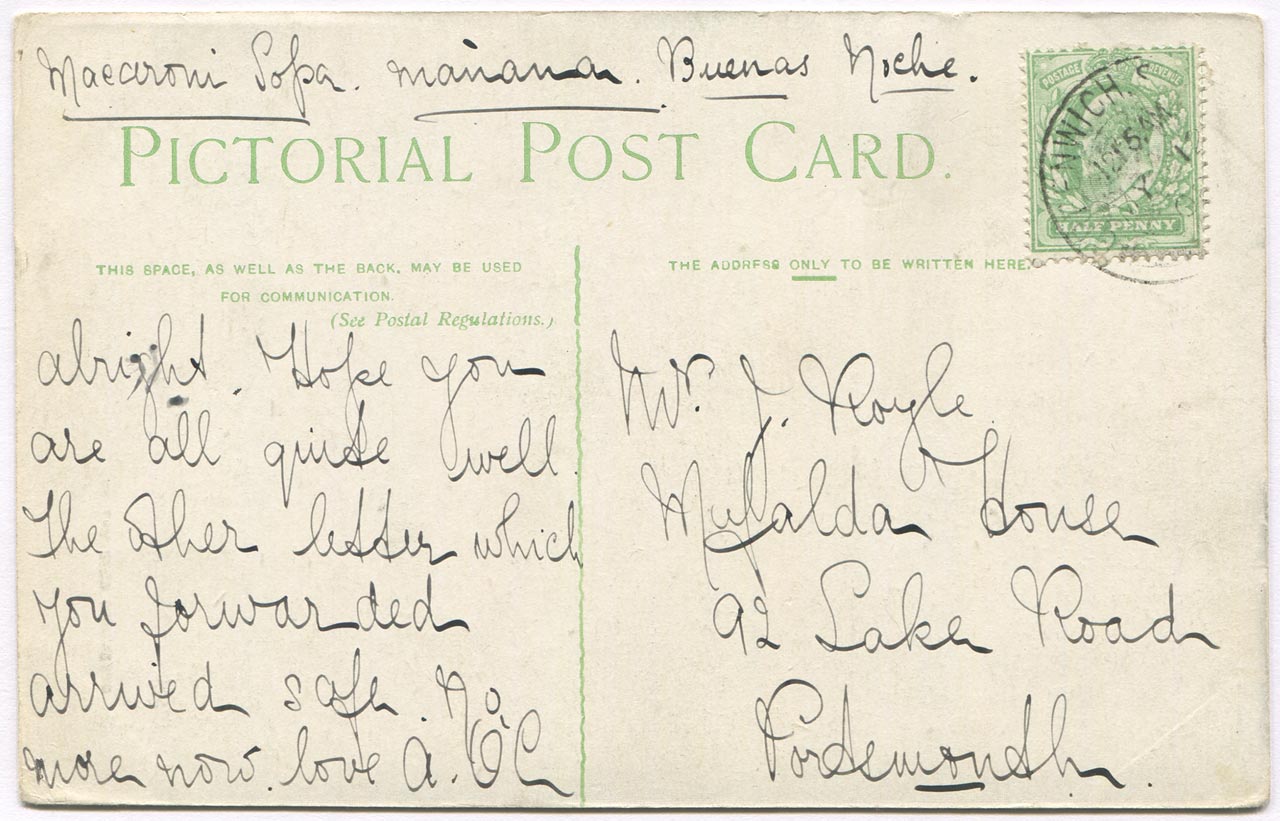 Macaroni Sopa. mañana. Buenas Noche.
POSTAGE REVENUE
ENWICH. S
HALF PENNY
PICTORIAL POST CARD.
THIS SPACE, AS WELL AS THE BACK, MAY BE USED
FOR COMMUNICATION.
(See Postal Regulations.)
THE ADDRESS ONLY TO BE WRITTEN HERE.
alright. Hope you
are all quite well.
The other letter which
you forwarded
arrived safe. No
more now. love A.
Mr. J. Royle
Mufalda House
92 Lake Road
Portsmouth.